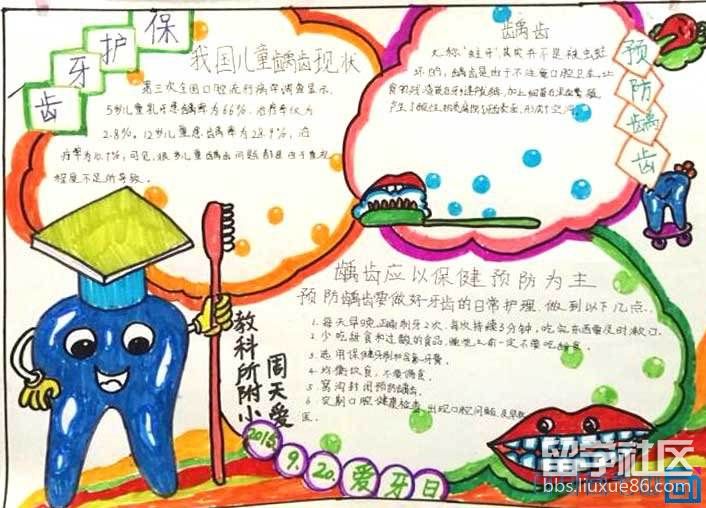 保
护
牙
齿
我国儿童龋齿现状
第三次全国口腔流行病学调查显示,
5岁儿童乳牙患龋率为66%,治疗率仅为
2.8%。12岁儿童患龋率为28.9%,治
疗率为10.7%,可见,很多儿童龋齿问题都是由于重视
程度不足所导致。
龋齿
又称“蛀牙”,其实并不是被虫蛀
坏的,龋齿是由于不注重口腔卫生,让
预
防
龋
齿
龋齿应以保健预防为主
预防龋齿要做好牙齿的日常护理,做到以下几点.
1.每天早晚正确刷牙2次,每次持续3分钟,吃完东西要及时漱口.
2.少吃甜食和过酸的食品,睡觉之前一定不要吃甜食.
3.选用保健牙刷和含氟牙膏.
4.均衡饮食,不要偏食.
5.窝沟封闭预防龋齿.
6.定期口腔健康检查,出现口腔问题及早就
医.
教科所附小
周天爱
2015.
9.20.爱牙日
留学社区
bbs.liuxue86.com